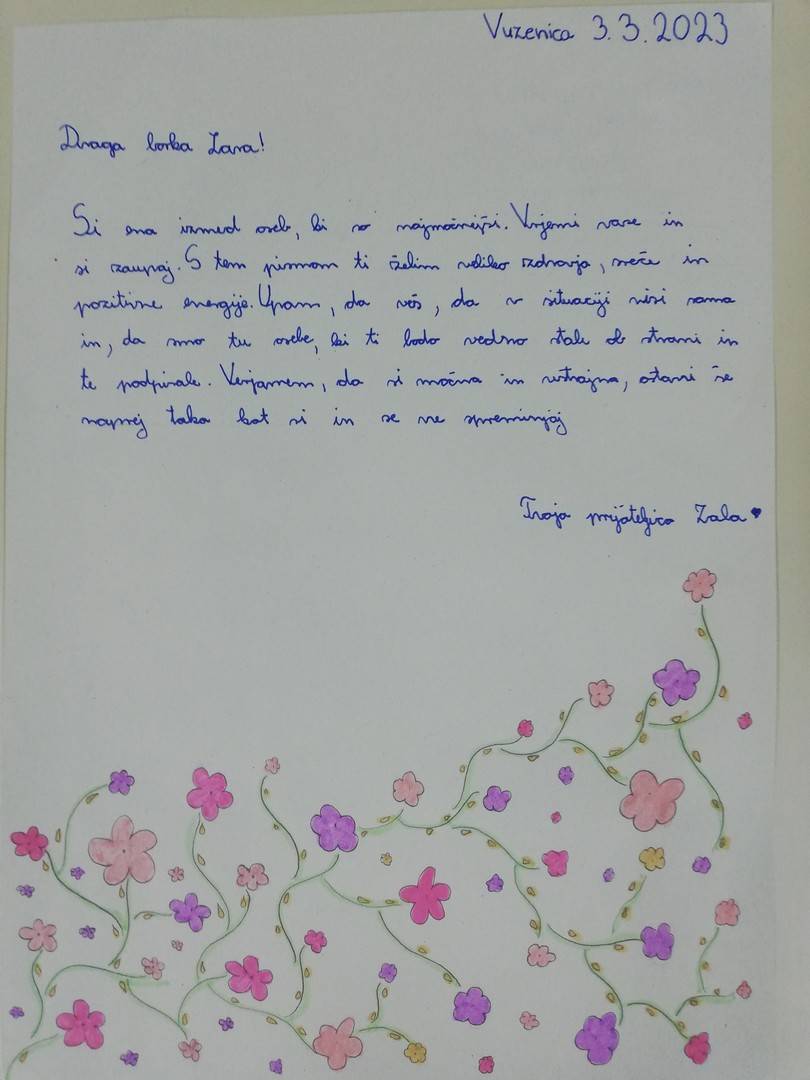 Vuzenica 3.3.2023
Draga borka Zara!
Si ena izmed oseb, ki so najmočnejši. Verjemi vase in
si zaupaj. S tem pismom ti želim veliko zdravja, sreče in
pozitivne energije. Upam, da veš, da v situaciji nisi sama
in, da smo tu osebe, ki ti bodo vedno stale ob strani in
te podpirale. Verjamem, da si močna in vztrajna, ostani še
naprej taka kot si in se ne spreminjaj
Tvoja prijateljica Zala